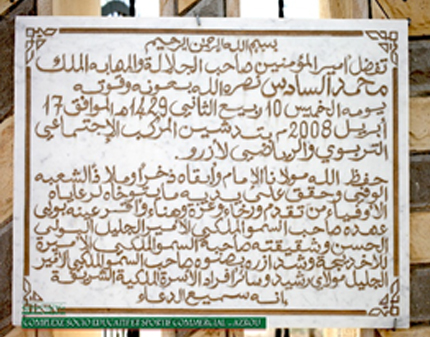 بسم الله الرحمن الرحيم
تفضل أمير المؤمنين صاحب الجلالة والمهابة الملك
محمد السادس نصره الله بعونه وقوته
يومه الخميس 10 ربيع الثاني 1429هـ الموافق 17
أبريل 2008م بتدشين المركب الإجتماعي
التربوي والرياضي لأزرو.
حفظ الله مولانا الإمام وأبقاه ذخرا وملاذا لشعبه
الوفي وحقق على يديه ما يتوخاه لرعاياه
الأوفياء من تقدم ورخاء وعزة وهناء وأقر عينه بولي
عهده صاحب السمو الملكي الأمير الجليل المولى
الحسن وشقيقته صاحبة السمو الملكي الأميرة
للا خديجة وشد أزره بصنوه صاحب السمو الملكي الأمير
الجليل مولاي رشيد وسائر أفراد الأسرة الملكية الشريفة
إنه سميع الدعاء
COMPLEXE SOCIO EDUCATIF ET SPORTIF COMMERCIAL - AZROU